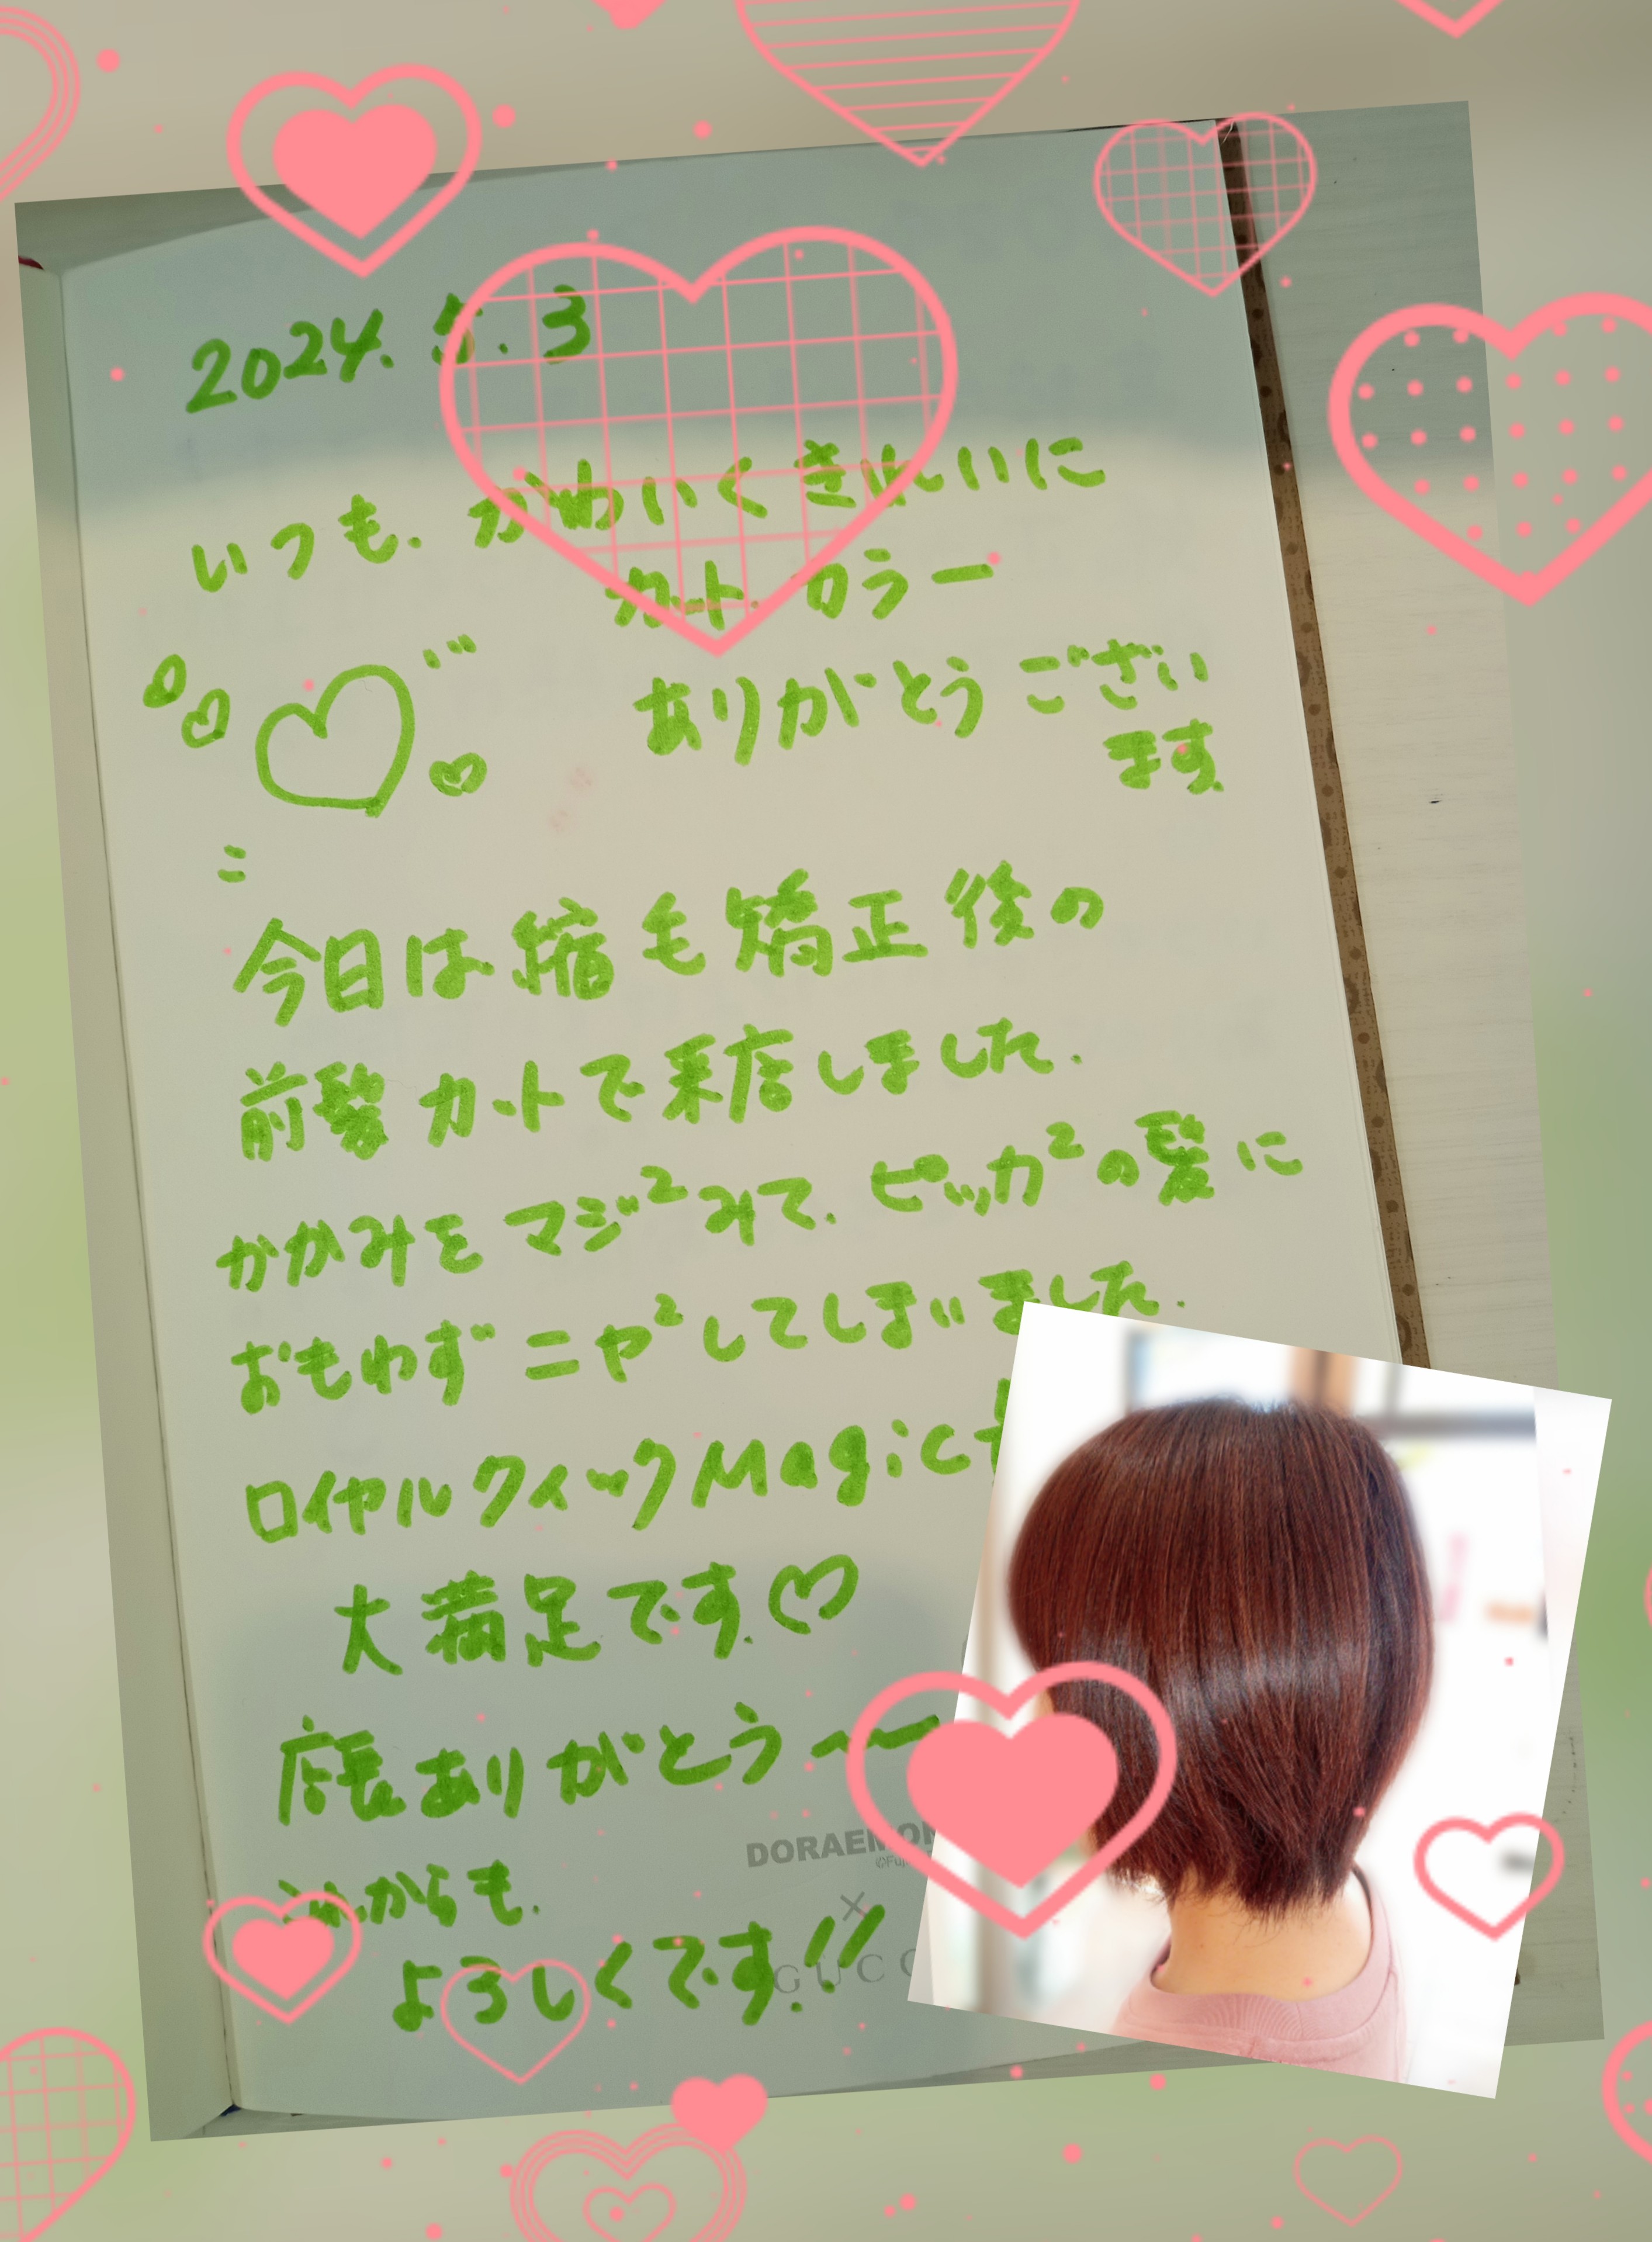 2024. 5. 3
いつも、かわいくきれいに
カット、カラー
ありがとうござい
ます
今日は縮毛矯正後の
前髪カットで来店しました.
かがみをマジ²みて、ピッカ²の髪に
おもわずニヤ²してしまいました.
ロイヤルクィックMagic
大満足です.♡
店長ありがとう〜〜
これからも、
よろしくです!!
DORAEMON
×
GUCC